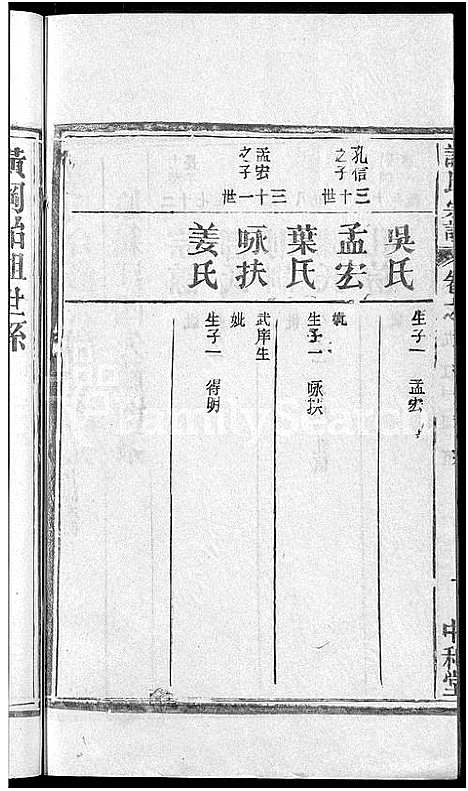 宗譜
中和堂
吳氏
生子一 孟宏
孔信三
之子十
世
孟宏
葉氏
妣
生子一 咏扶
孟宏三
之子十
一
世
咏扶
武庠生
姜氏
妣
生子一 得明
黃岡始祖世系